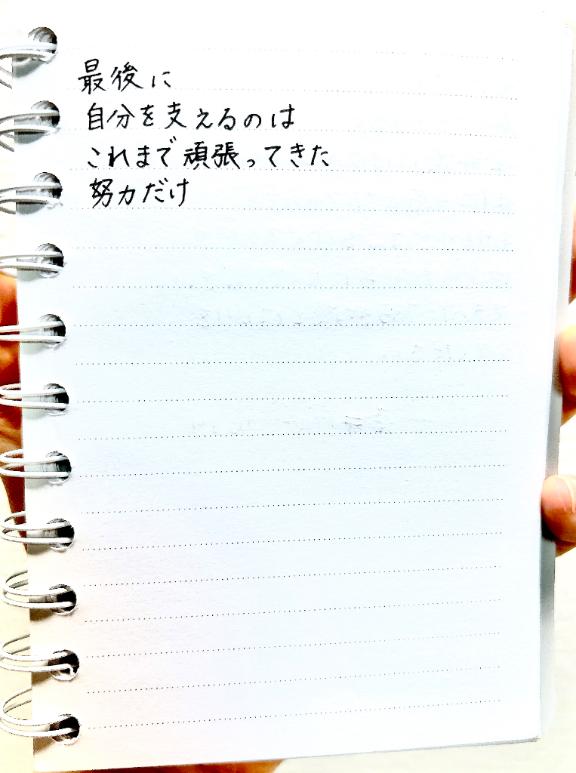 最後に
自分を支えるのは
これまで頑張ってきた
努力だけ